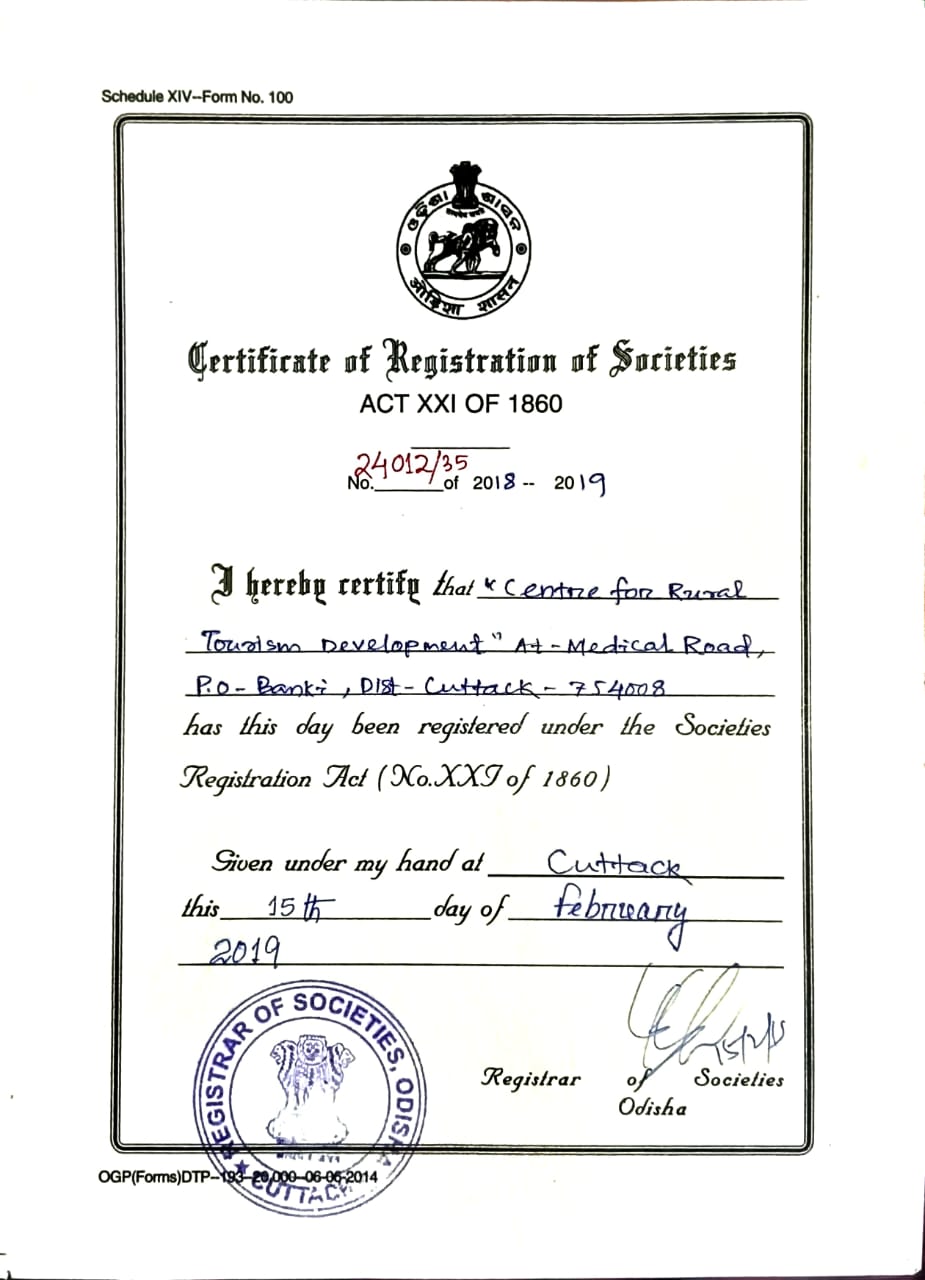 Schedule XIV--Form No. 100
ଓଡ଼ିଶା ଶାସନ
ओड़िशा शासन
Certificate of Registration of Societies
ACT XXI OF 1860
No. 24012/35 of 2018 -- 2019
I hereby certify that "Centre for Rural
Tourism Development" At - Medical Road,
P.O - Banki, Dist - Cuttack - 754008
has this day been registered under the Societies
Registration Act (No.XXI of 1860)
Given under my hand at Cuttack
this 15th day of february
2019
15/2/19
Registrar of Societies
Odisha
REGISTRAR OF SOCIETIES, ODISHA
★ CUTTACK
OGP(Forms)DTP--193--20,000--06-06-2014